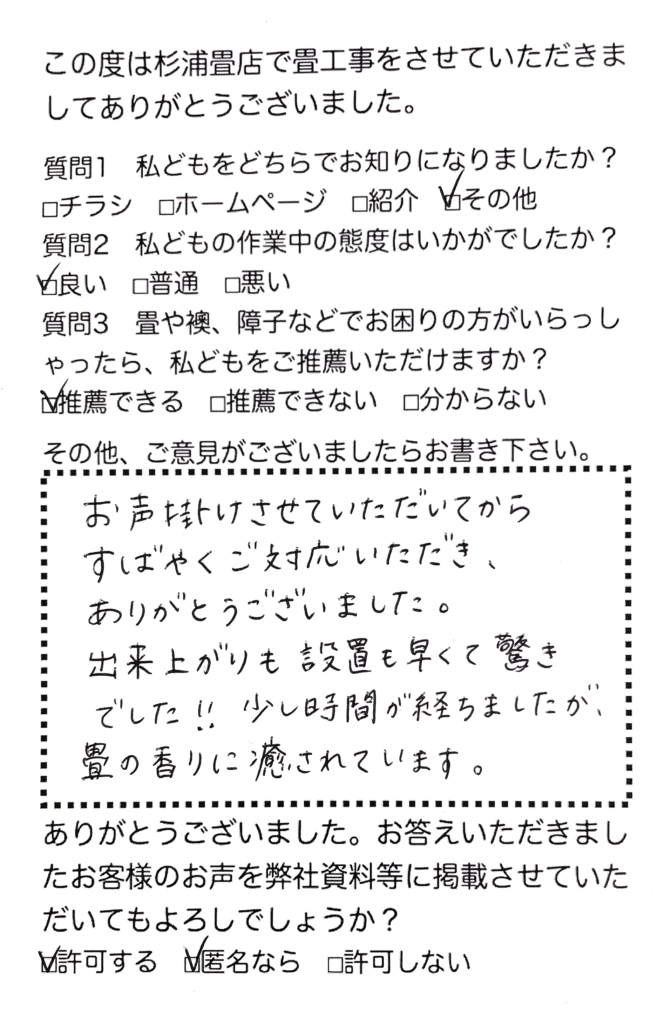 この度は杉浦畳店で畳工事をさせていただきま
してありがとうございました。
質問1　私どもをどちらでお知りになりましたか？
□チラシ　□ホームページ　□紹介　☑その他
質問2　私どもの作業中の態度はいかがでしたか？
☑良い　□普通　□悪い
質問3　畳や襖、障子などでお困りの方がいらっし
ゃったら、私どもをご推薦いただけますか？
☑推薦できる　□推薦できない　□分からない
その他、ご意見がございましたらお書き下さい。
お声掛けさせていただいてから
すばやくご対応いただき、
ありがとうございました。
出来上がりも設置も早くて驚き
でした!! 少し時間が経ちましたが、
畳の香りに癒されています。
ありがとうございました。お答えいただきまし
たお客様のお声を弊社資料等に掲載させていた
だいてもよろしでしょうか？
☑許可する　☑匿名なら　□許可しない